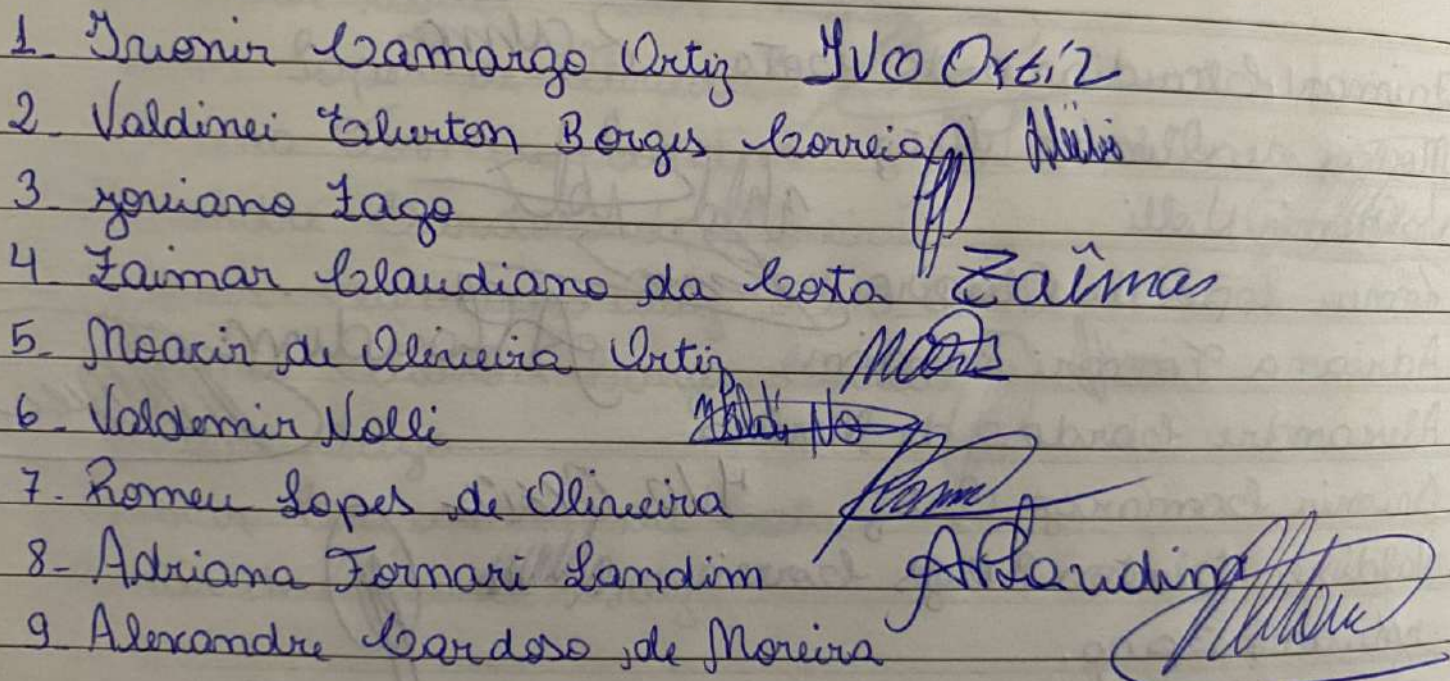 1 Ivonir Camargo Ortiz IVO Ortiz
2. Valdinei Borges Correia
3. Zago
4 Zaimar Claudiano da Costa Zaimar
5. Moacir de Oliveira Ortiz
6. Valdemir Nolli
7. Romeu Lopes de Oliveira
8- Adriana Fornari Landim ALandim
9 Alexandre Cardoso de Moreira